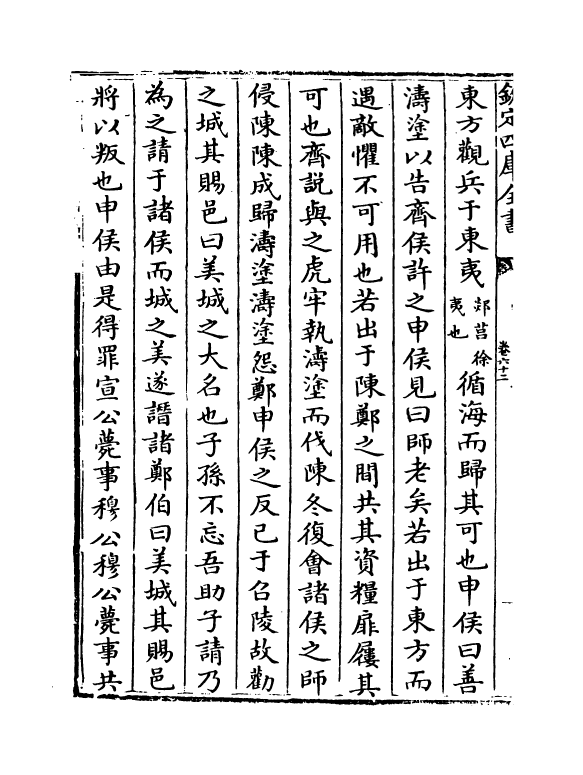 欽定四庫全書
卷六十二
東方觀兵于東夷郯莒徐夷也循海而歸其可也申侯曰善
濤塗以告齊侯許之申侯見曰師老矣若出于東方而
遇敵懼不可用也若出于陳鄭之間共其資糧屝屨其
可也齊說與之虎牢執濤塗而伐陳冬復會諸侯之師
侵陳陳成歸濤塗濤塗怨鄭申侯之反已于召陵故勸
之城其賜邑曰美城之大名也子孫不忘吾助子請乃
為之請于諸侯而城之美遂譖諸鄭伯曰美城其賜邑
將以叛也申侯由是得罪宣公薨事穆公穆公薨事共